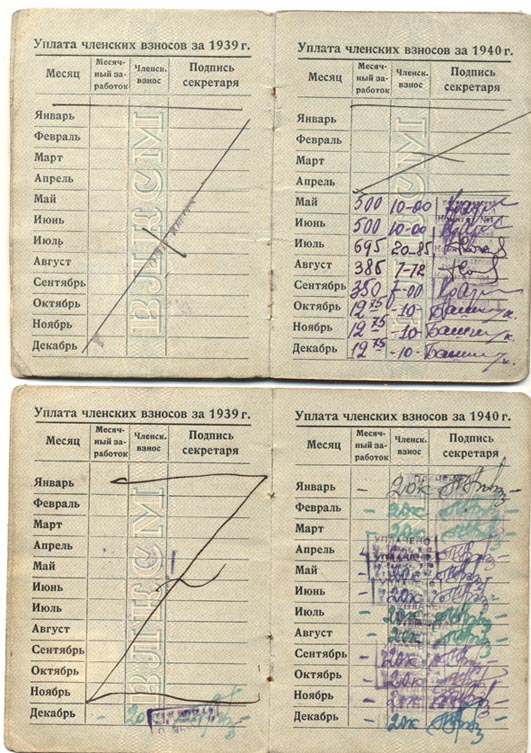 Уплата членских взносов за 1939 г.
Месяц
Месяч-
ный за-
работок
Членск.
взнос
Подпись
секретаря
Январь
Февраль
Март
Апрель
Май
Июнь
Июль
Август
Сентябрь
Октябрь
Ноябрь
Декабрь
ВЛКСМ
Уплата членских взносов за 1940 г.
Месяц
Месяч-
ный за-
работок
Членск.
взнос
Подпись
секретаря
Январь
Февраль
Март
Апрель
Май 500 10-00
Июнь 500 10-00
Июль 695 20-85
Август 386 7-72
Сентябрь 350 7-00
Октябрь 12 75 -10-
Ноябрь 12 75 -10-
Декабрь 12 75 -10-
Уплата членских взносов за 1939 г.
Месяц
Месяч-
ный за-
работок
Членск.
взнос
Подпись
секретаря
Январь
Февраль
Март
Апрель
Май
Июнь
Июль
Август
Сентябрь
Октябрь
Ноябрь
Декабрь -
ВЛКСМ
Уплата членских взносов за 1940 г.
Месяц
Месяч-
ный за-
работок
Членск.
взнос
Подпись
секретаря
Январь - 20к
Февраль - 20к
Март - 20к
УПЛАЧЕНО
Апрель - 20к
Май - 20к
Июнь - 20к
Июль - 20к
Август - 20к
Сентябрь - 20к
Октябрь - 20к
Ноябрь - 20к
Декабрь - 20к